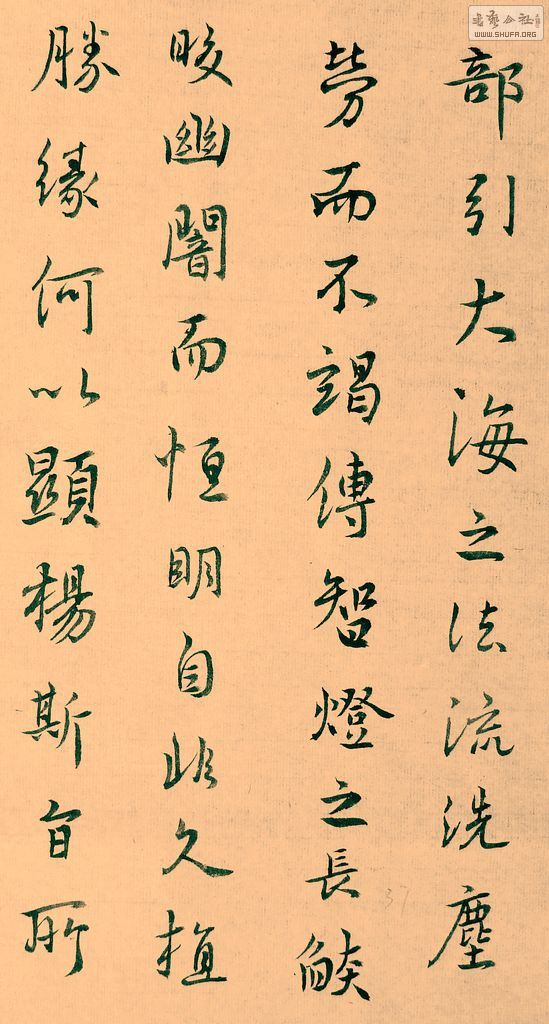 書藝公社
WWW.SHUFA.ORG
部引大海之法流洗塵
勞而不竭傳智燈之長燄
晈幽闇而恒明自非久植
勝緣何以顯楊斯旨所
37